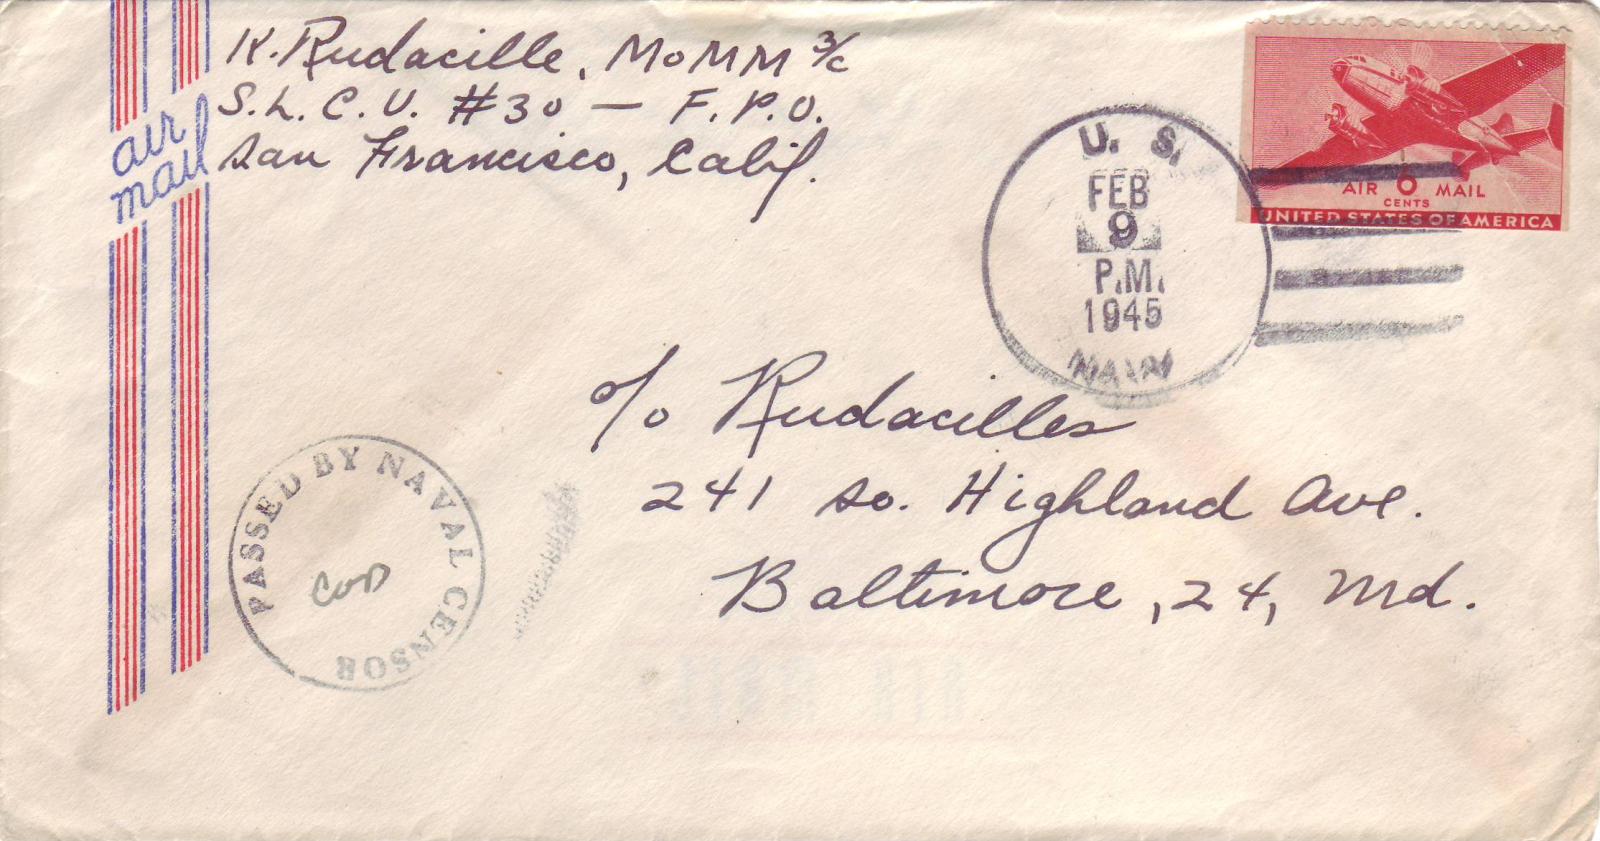 K. Rudacille, MoMM 3/c
S.L.C.U. #30 — F.P.O.
San Francisco, Calif.
air
mail
AIR 6 MAIL
CENTS
UNITED STATES OF AMERICA
U. S.
FEB
9
P.M.
1945
NAVY
c/o Rudacilles
241 So. Highland Ave.
Baltimore, 24, Md.
PASSED BY NAVAL CENSOR